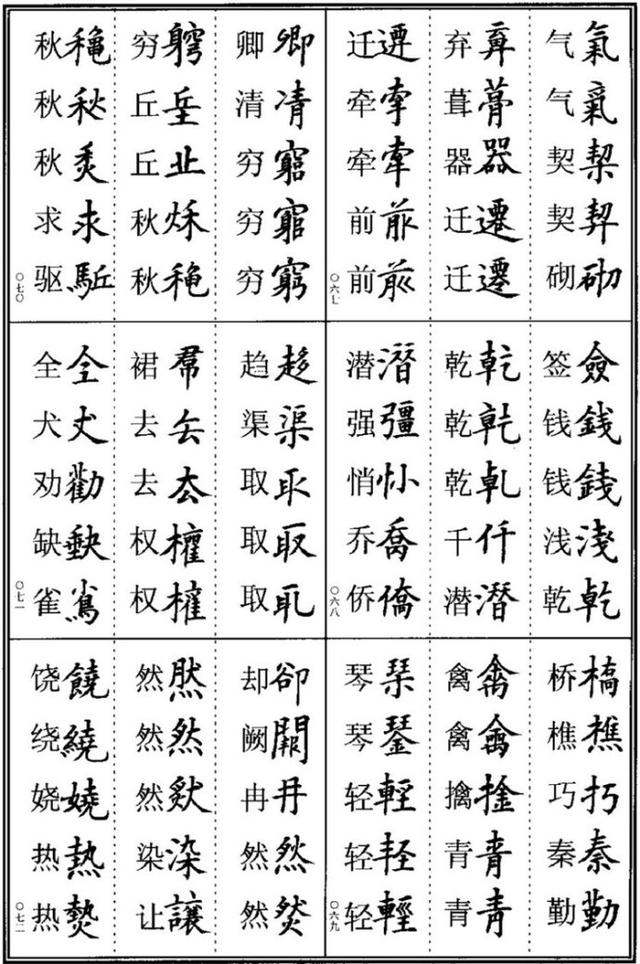 气氣
气氣
契契
契契
砌砌
弃弃
葺
器器
迁遷
迁遷
迁遷
牵牵
牵牽
前前
前前
〇六七
签僉
钱錢
钱錢
浅淺
乾乾
乾乾
乾乾
乾乹
千仟
潜潛
潜潛
强彊
悄悄
乔喬
侨僑
〇六八
桥橋
樵樵
巧巧
秦秦
勤勤
禽禽
禽禽
擒捦
青青
青青
琴琹
琴琴
轻輕
轻軽
轻輕
〇六九
卿卿
清凊
穷窮
穷窮
穷窮
穷竆
丘丠
丘丘
秋秌
秋穐
秋穐
秋秋
秋秋
求求
驱駈
〇七〇
趋趍
渠渠
取取
取取
取取
裙帬
去去
去厺
权權
权權
全仝
犬犬
劝勸
缺缺
雀雀
〇七一
却卻
阙闕
冉冄
然然
然然
然然
然然
然然
染染
让讓
饶饒
绕繞
娆嬈
热熱
热熱
〇七二